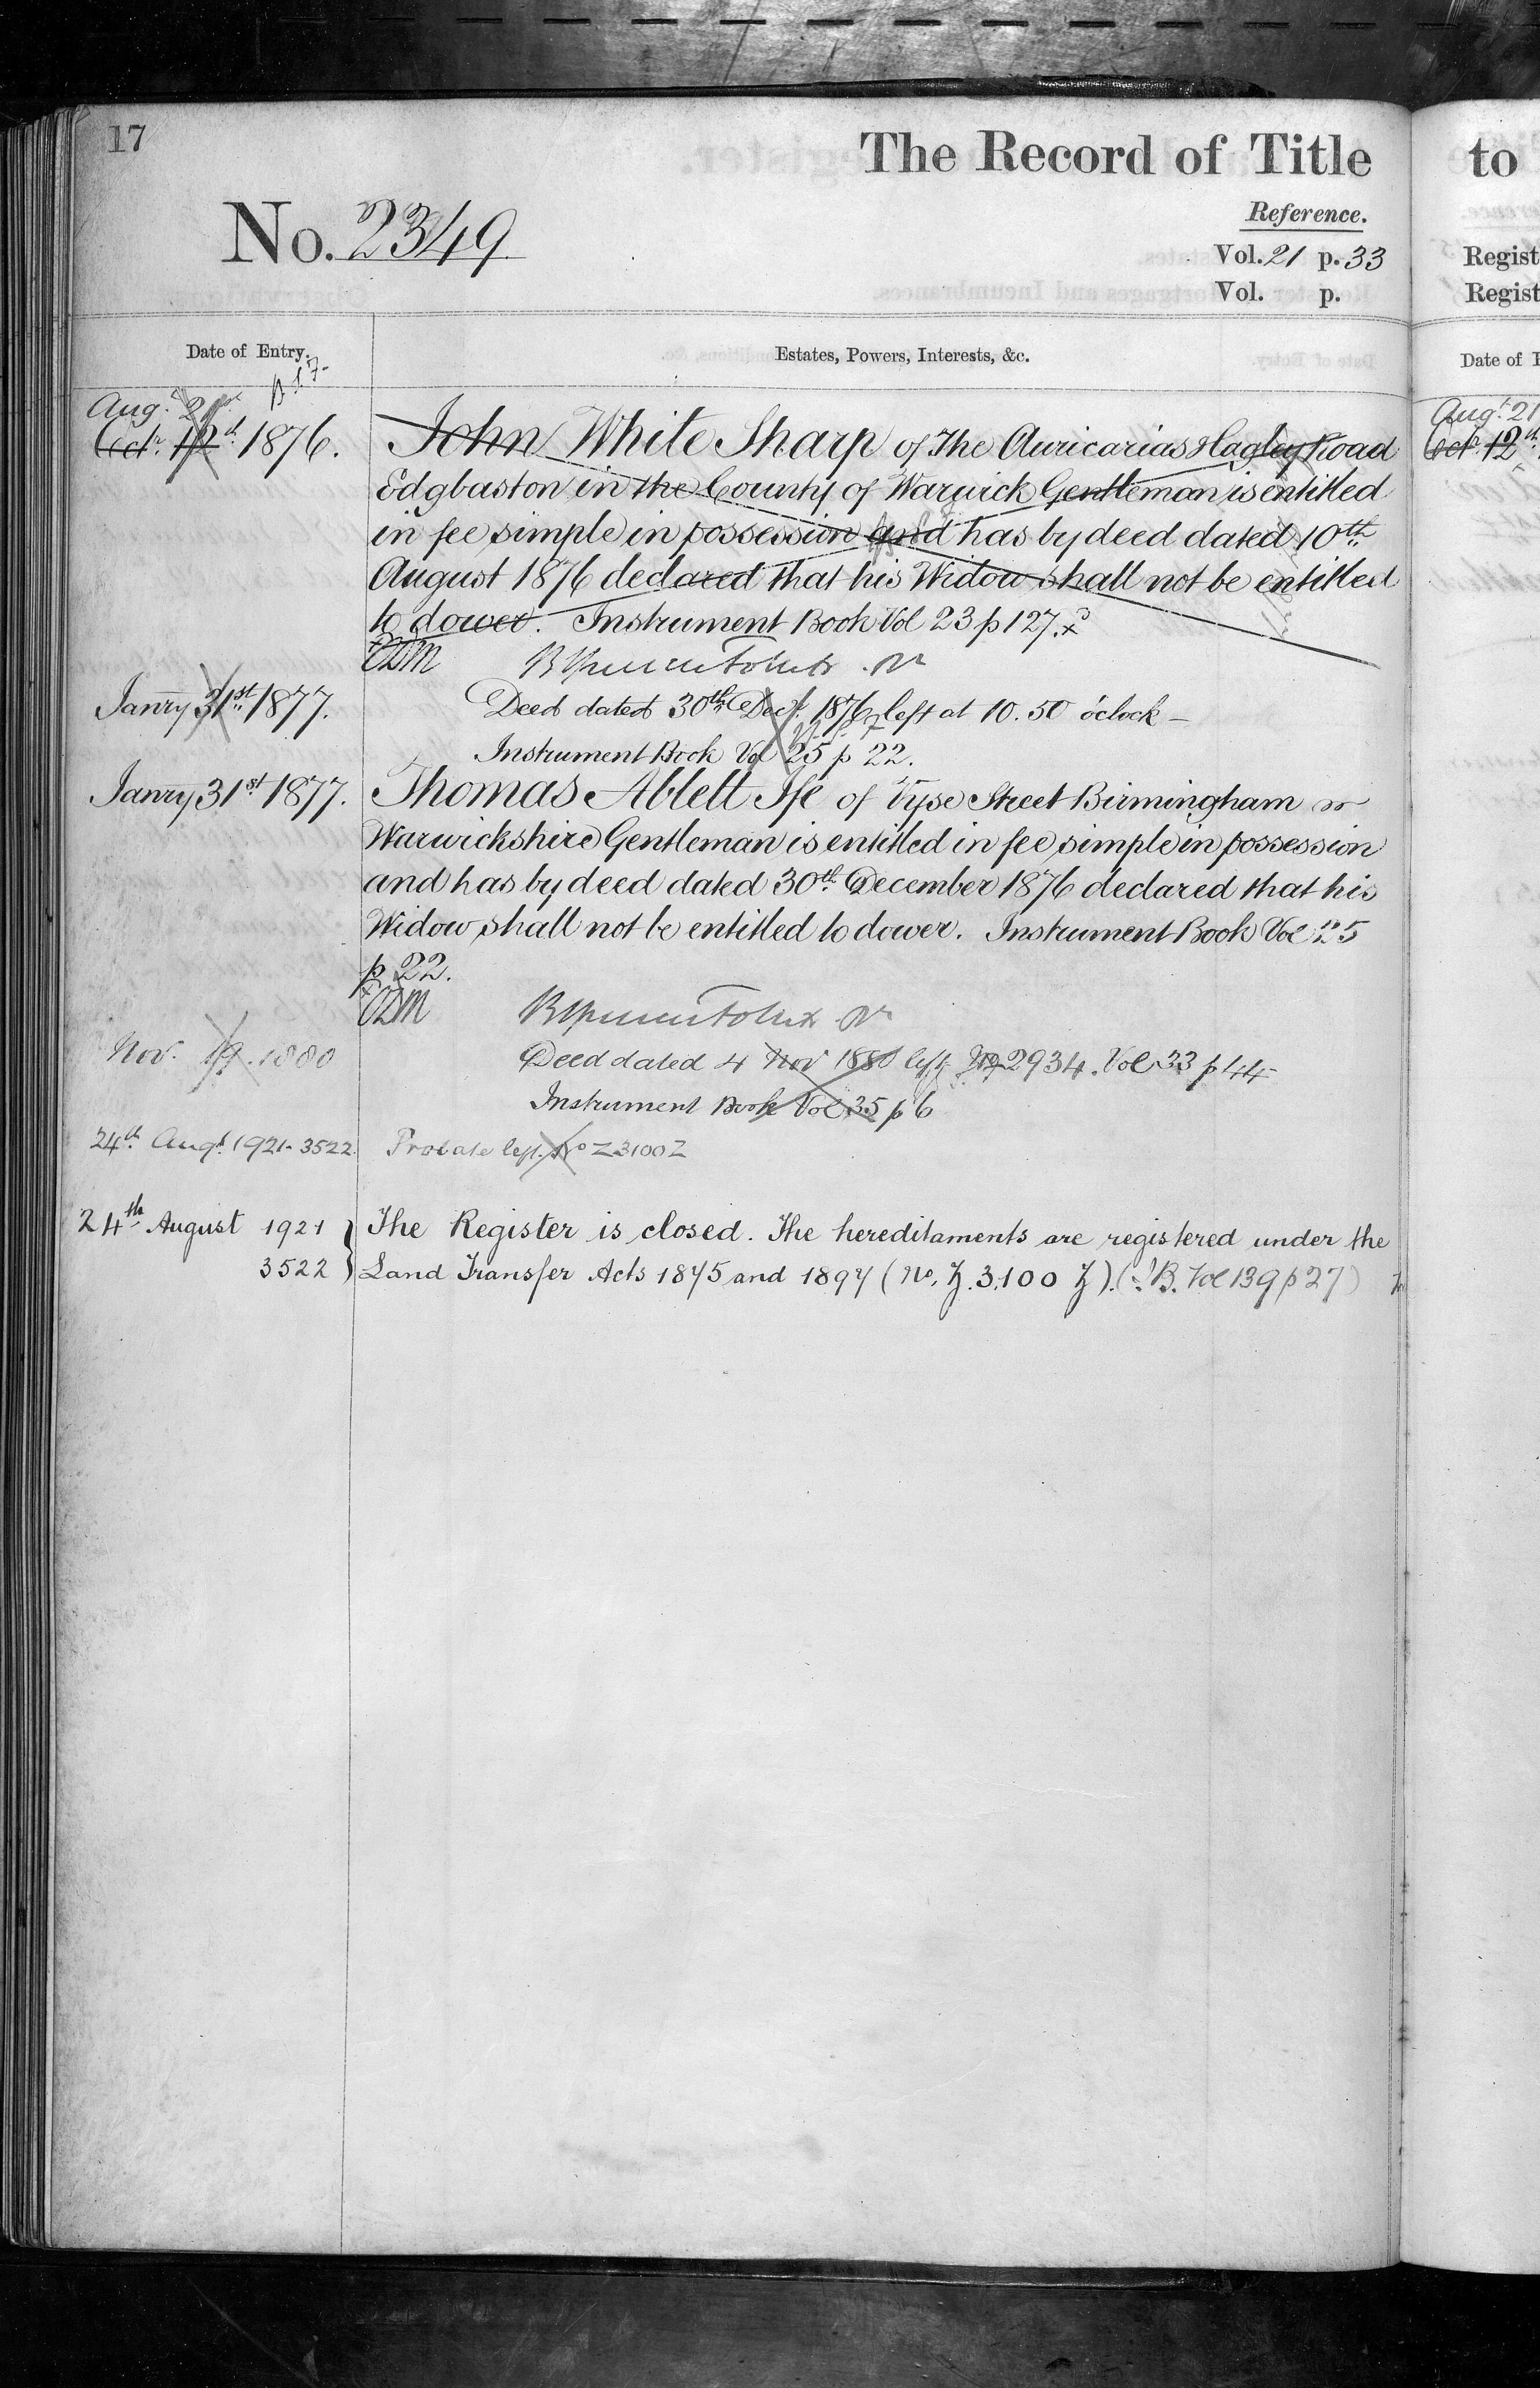 17
The Record of Title
to
Reference.
No. 2349
Vol. 21 p. 33
Regist
Vol. p.
Regist
Date of Entry.
Estates, Powers, Interests, &c.
Date of E
Augt. 21
Octr. 12th 1876.
John White Sharp of The Auricarias Hagley Road
Edgbaston in the County of Warwick Gentleman is entitled
in fee simple in possession and has by deed dated 10th
August 1876 declared that his Widow shall not be entitled
to dower. Instrument Book Vol 23 p 127.
Augt. 21
Octr. 12th
Janry 31st 1877.
Deed dated 30th Decr. 1876 left at 10.50 o'clock –
Instrument Book Vol 25 p 22.
Janry 31st 1877.
Thomas Ablett Ife of Vyse Street Birmingham
Warwickshire Gentleman is entitled in fee simple in possession
and has by deed dated 30th December 1876 declared that his
Widow shall not be entitled to dower. Instrument Book Vol 25
p 22.
Nov. 19. 1880
Deed dated 4 Nov 1880 left No 2934. Vol 33 p 44
Instrument Book Vol 35 p 6
24th Augt. 1921 - 3522
Probate left. No Z3100Z
24th August 1921
3522
The Register is closed. The hereditaments are registered under the
Land Transfer Acts 1875 and 1897 (No. Z. 3,100 Z). (I.B. Vol 139 p 27)